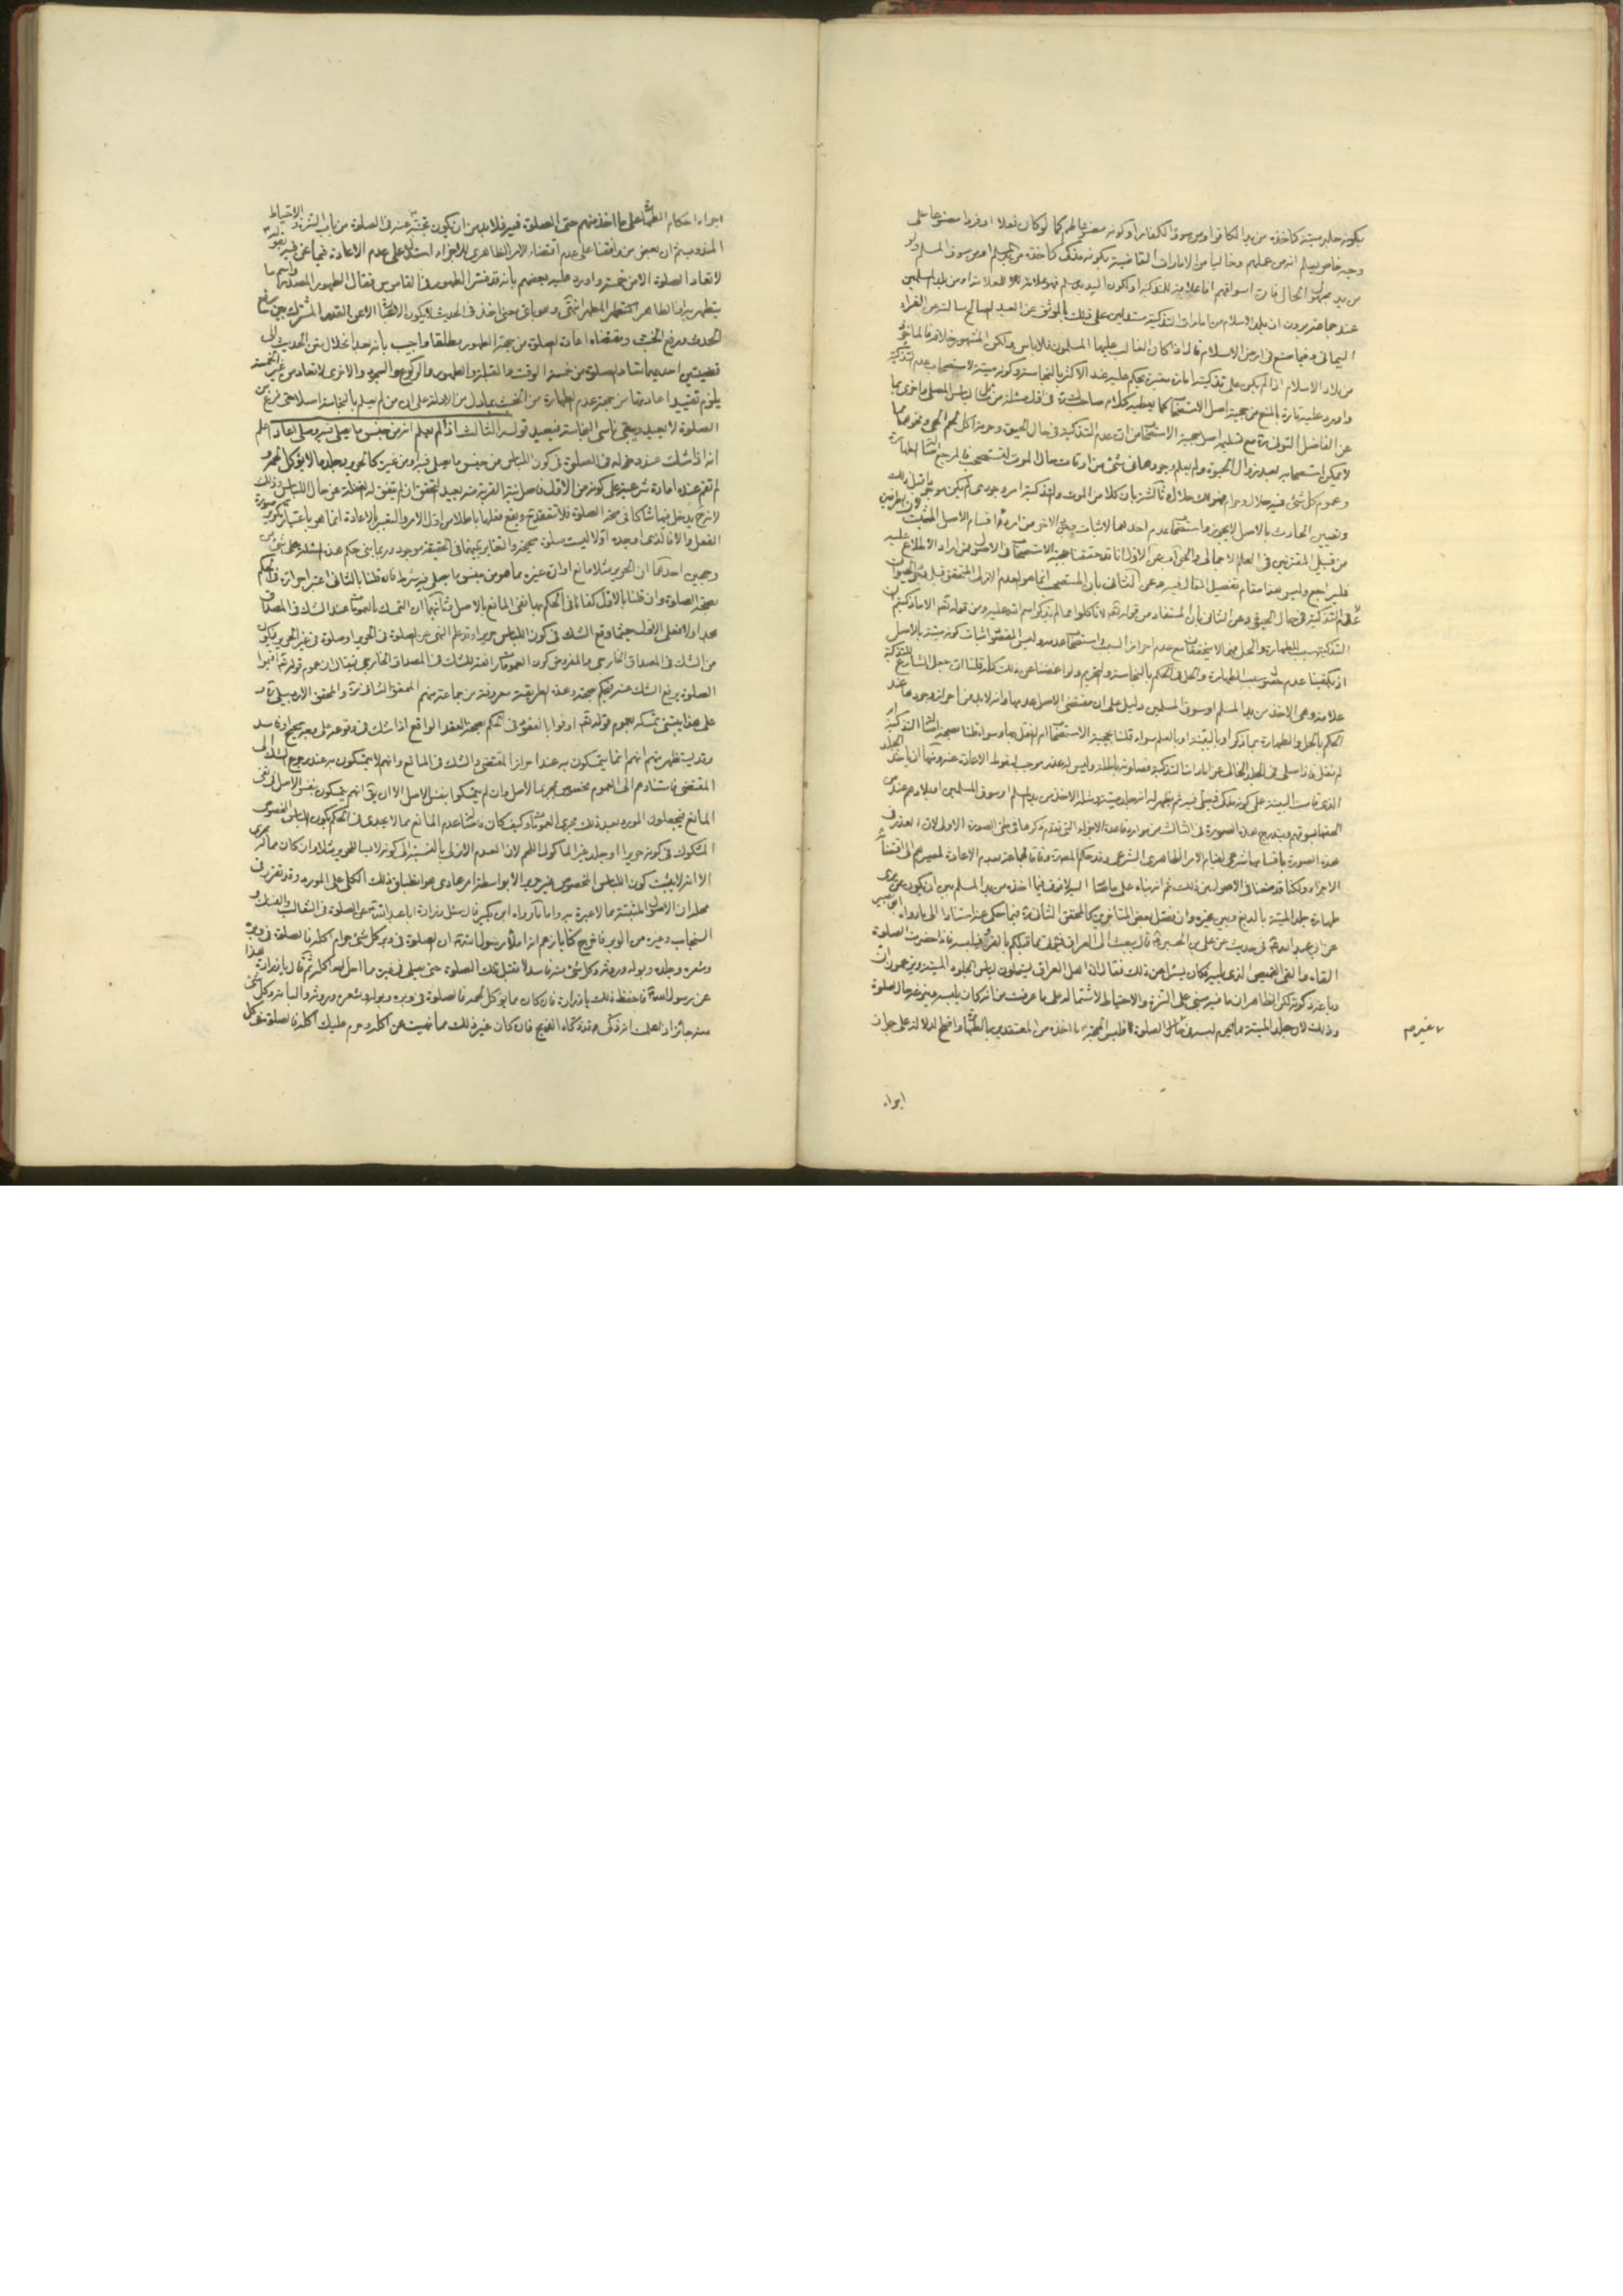 بكونه جلد ميتة كاخذه من يد الكافر او من سوق الكفار او كونه مصنوعا لهم كما لو كان نعلا او فروا مصنوعا على
وجه خاص يعلم انه من عملهم وخاليا من الامارات القاضية بكونه مذكى كاخذه من يد مسلم او من سوق المسلم
من يد مجهول الحال
عند جماعة يرون ان بلد الاسلام من امارات التذكية مستدلين على ذلك بالموثق عن العبد الصالح سالته عن الفراء
اليماني وفيما صنع في ارض الاسلام قال اذا كان الغالب عليها المسلمون فلا باس ولكن المشهور خلافه فالماخوذ
من بلاد الاسلام اذا لم يكن على تذكيته امارة معتبرة يحكم عليه عند الاكثر بالنجاسة وكونه ميتة لاستصحاب عدم التذكية
واورد عليه تارة بالمنع من حجية اصل الاستصحاب كما يعطيه كلام صاحب
عن الفاضل التوني مع تسليم اصل حجية الاستصحاب
لا يمكن استصحابه بعد زوال الحيوة ولم يعلم وجودها في شئ من اوقات حال الموت
وعموم كل شئ فيه حلال وحرام فهو لك حلال وثالثة بان كلا من الموت والتذكية امر وجودي
وتعيين الحادث بالاصل لا يجوز واستصحاب عدم احدهما لاثبات الاخر من اردء اقسام الاصل المثبت
من قبيل المقترنين في العلم الاجمالي والجواب عن الاول انا قد حققنا حجية الاستصحاب في الاصول فمن اراد الاطلاع عليه
فليراجع وليس هنا مقام تفصيل المقال فيه وعن الثاني بان المستصحب انما هو العدم الازلي المتحقق قبل
التذكية في حال الحيوة وعن الثالث بان المستفاد من قوله تعالى لا تاكلوا مما لم يذكر اسم الله عليه ومن قوله تعالى الا ما ذكيتم ان
التذكية سبب للطهارة والحل
اذ يكفينا عدم سبب الطهارة والحل في الحكم بالنجاسة والتحريم ولو اغمضنا عن ذلك كله قلنا ان جعل الشارع للتذكية
علامة وهي الاخذ من يد المسلم او سوق المسلمين دليل على ان مقتضى الاصل عدمها وانه لا بد من احراز وجودها عند
الحكم بالحل والطهارة بما ذكر او بالبينة او بالعلم سواء قلنا بحجية الاستصحاب ام لم نقل بها وسواء قلنا بصحة
لم نقل فاذا صلى في الجلد الخالي عن امارات التذكية فصلوته باطلة وليس له عذر موجب لسقوط الاعادة عنه
الذي قامت البينة على كونه مذكى فيصلي فيه ثم يظهر له انه جلد ميتة ومثله الاخذ من يد المسلم او سوق المسلمين او بلادهم عند من
الحقها بسوقهم ويندرج هذه الصورة في الثالث من موارد قاعدة الاجزاء التي تقدم ذكرها في طي الصورة الاولى
هذه الصورة باقسامها شرعي لقيام الامر الظاهري الشرعي
الاجزاء ولكنا قد منعنا في الاصول من ذلك ثم انه بناء على ما اخذه من يد المسلم بين ان يكون ممن يرى
طهارة جلد الميتة بالدبغ وبين غيره وان فصل بعض المتاخرين كالمحقق الثاني فيما حكي عنه استنادا الى ما رواه ابو بصير
عن ابي عبد الله في حديث عن علي بن الحسين قال كان يبعث الى العراق فيؤتى مما قبلكم بالفرو فيلبسه فاذا حضرت الصلوة
القاه والقى القميص الذي يليه فكان يسئل عن ذلك فقال ان اهل العراق يستحلون لباس الجلود الميتة ويزعمون ان
دباغه ذكوته لكن الظاهر ان ما فيه مبني على التنزه والاحتياط لاشتماله على ما عرفت من انه كان يلبسه في غير حال الصلوة
وذلك لان جلد الميتة مما يحرم لبسه في
غيرم
اجراء
اجراء احكام الطهارة على ما اخذ منهم حتى الصلوة فيه فلا بد من ان يكون تجنبه عنه في الصلوة من باب التنزه والاحتياط
المندوب ثم ان بعض من وافقنا على عدم اقتضاء الامر الظاهري للاجزاء استدل على عدم الاعادة فيما نحن فيه بقوله
لا تعاد الصلوة الا من خمسة واورد عليه بعضهم بانه قد فسر الطهور في القاموس فقال الطهور المصدر واسم ما
يتطهر به او الطاهر المطهر انتهى وهو باق حتى اخذ في الحديث
الحدث ورفع الخبث ومقتضاه اعادة الصلوة من جهة الطهور مطلقا واجيب بانه بعد انحلال متن الحديث الى
قضيتين احديهما تعاد الصلوة من خمسة الوقت والقبلة والطهور والركوع والسجود والاخرى لا تعاد من غير الخمسة
يلزم تقييد اعادتها من جهة عدم الطهارة من الخبث بما دل من الادلة على ان من لم يعلم بالنجاسة اصلا حتى فرغ من
الصلوة لا يعيد ويبقى ناسي النجاسة فيعيد قوله الثالث اذا لم يعلم انه من جنس ما يصلى فيه وصلى اعاد اعلم
انه اذا شك عند دخوله في الصلوة في كون اللباس من جنس ما يصلى فيه او من غيره كالحرير وجلد ما لا يؤكل لحمه و
لم تقم عنده امارة شرعية على كونه من الاول
لانه ح يدخل فيها شاكا في صحة الصلوة فلا تنعقد ح ويقع فعلها باطلا من اول الامر والتعبير بالاعادة انما هو باعتبار تكرير صورة
الفعل والا فالذي اوجده اولا ليست صلوة صحيحة
وجهين احدهما ان الحرير مثلا مانع او ان غيره مما هو من جنس ما يصلى فيه شرط فان قلنا بالثاني اعتبر احرازه في الحكم
بصحة الصلوة وان قلنا بالاول كفانا في الحكم بها نفي المانع بالاصل ثانيهما ان التمسك بالعمومات عند الشك في المصداق
مجد اولا فعلى الاول حيثما وقع الشك في كون اللباس حريرا وقد علم النهي عن الصلوة في الحرير او صلوة في غير الحرير يكون
من الشك في المصداق الخارجي والمفروض كون العمومات رافعة للشك في المصداق الخارجي فيقال ان عموم قوله تعالى اقيموا
الصلوة يرفع الشك عنه ويحكم بصحته وهذه الطريقة معروفة من جماعة منهم المحقق الثاني والمحقق الاردبيلي
على هذا يبتني تمسكه بعموم قوله تعالى اوفوا بالعقود في الحكم بصحة العقد الواقع اذا شك في وقوعه على وجه صحيح او فاسد
وقد يستظهر منهم انهم انما يتمسكون به عند احراز المقتضي والشك في المانع وانهم لا يتمسكون به عند رجوع الشك الى
المقتضي فاستنادهم الى العموم مخصوص بمجرى الاصل وان لم يتمسكوا بنفس الاصل الا ان يق انهم يتمسكون بنفس الاصل في نفي
المانع فيجعلون المورد بعد ذلك مجرى العمومات وكيف كان فاصالة عدم المانع مما لا يجدي في الحكم بكون اللباس المخصوص
المشكوك في كونه حريرا او جلد غير الماكول اللحم لان العدم الازلي بالنسبة الى كونه لابسا للحرير مثلا وان كان مما له مجرى
الا انه لا يثبت كون اللباس المخصوص غير حرير الا بواسطة امر عادي هو انطباق ذلك الكلي على المورد وقد تقرر في
محله ان الاصول المثبتة مما لا عبرة به واما ما رواه ابن بكير قال سئل زرارة ابا عبد الله عن الصلوة في الثعالب والفنك و
السنجاب وغيره من الوبر فاخرج كتابا زعم انه املاء رسول الله ان الصلوة في وبر كل شئ حرام اكله فالصلوة في وبره
وشعره وجلده وبوله وروثه وكل شئ منه فاسد لا تقبل تلك الصلوة حتى يصلي في غيره مما احل الله اكله ثم قال يا زرارة هذا
عن رسول الله فاحفظ ذلك يا زرارة فان كان مما يؤكل لحمه فالصلوة في وبره وبوله وشعره وروثه والبانه وكل شئ
منه جائز اذا علمت انه ذكي قد ذكاه الذبح فان كان غير ذلك مما نهيت عن اكله وحرم عليك اكله فالصلوة في كل